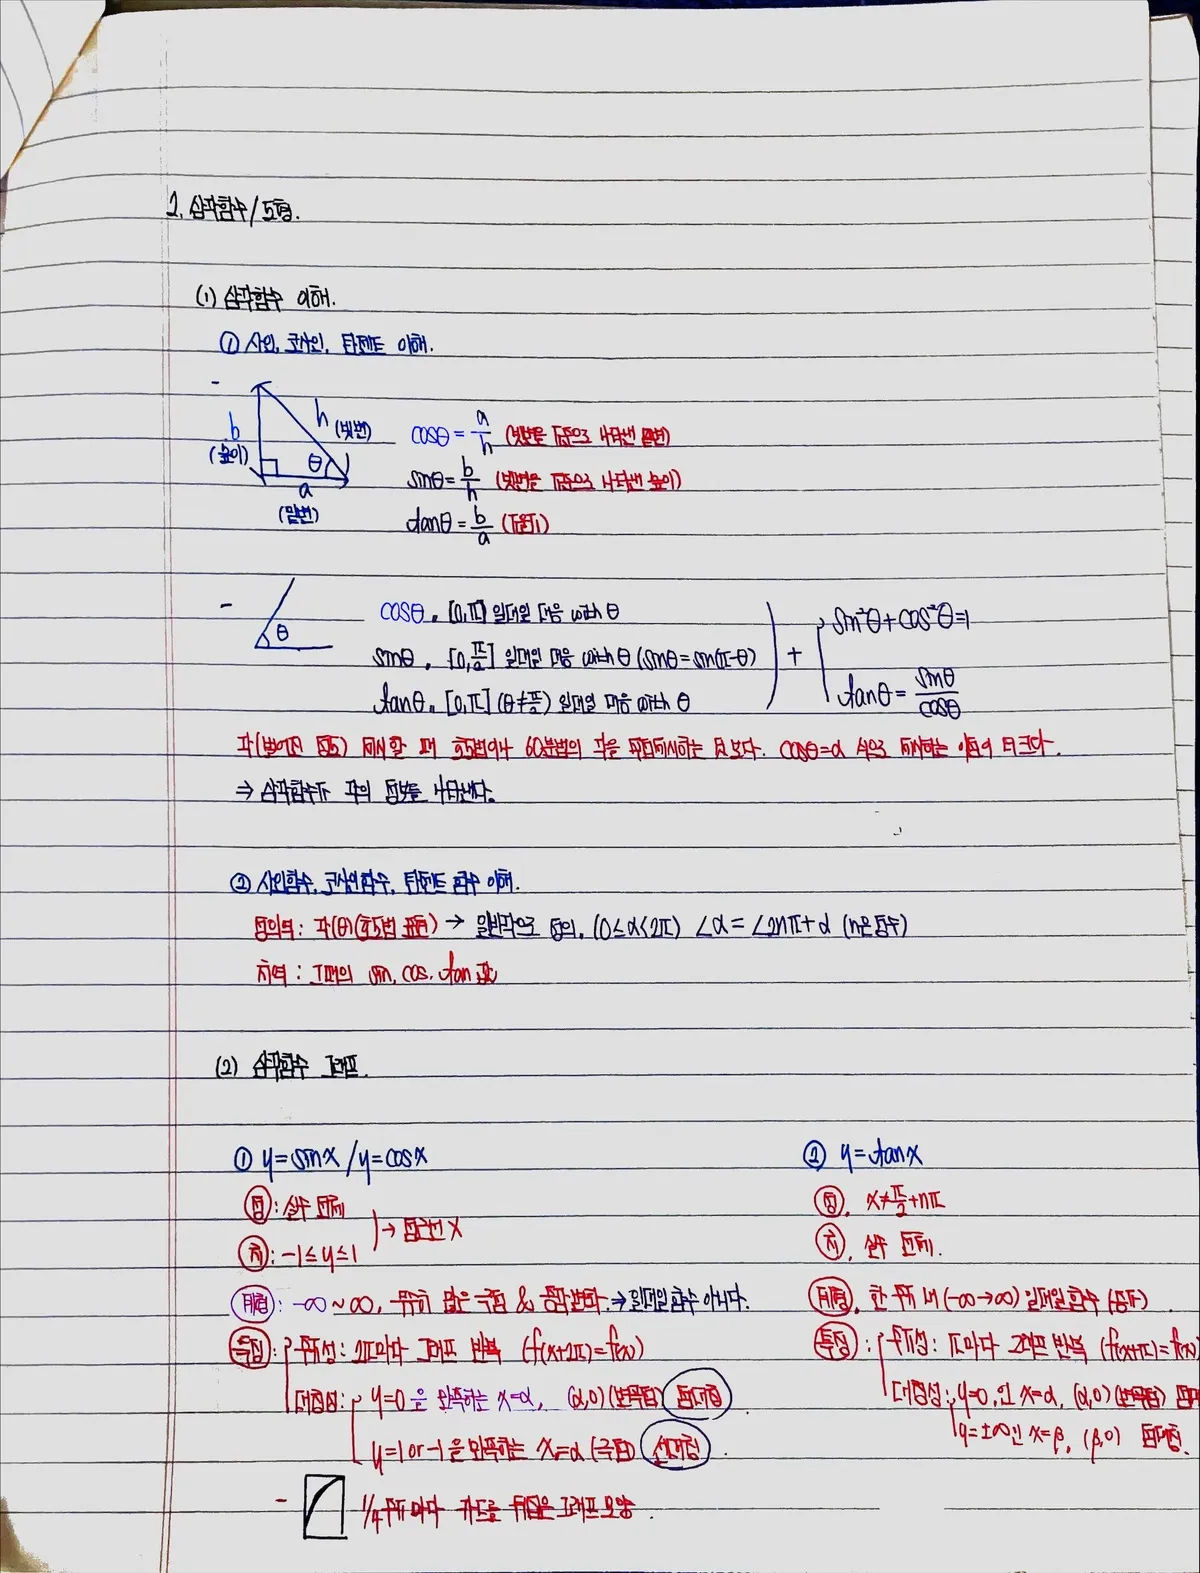 2. 삼각함수/도형.
(1) 삼각함수 이해.
① 사인, 코사인, 탄젠트 이해.
- b (높이) h (빗변) θ a (밑변)
cosθ = a/h (빗변을 기준으로 나타낸 밑변)
sinθ = b/h (빗변을 기준으로 나타낸 높이)
tanθ = b/a (기울기)
- θ
cosθ. [0,π] 일대일 대응 with θ
sinθ. [0,π/2] 일대일 대응 with θ (sinθ=sin(π-θ))
tanθ. [0,π] (θ≠π/2) 일대일 대응 with θ
+ sin²θ+cos²θ=1
tanθ = sinθ/cosθ
각(벌어진 정도) 표시할 때 호도법이나 60분법의 각을 직접표시하는 것 보다. cosθ=α 식으로 표시하는 이점이 더 크다.
⇒ 삼각함수가 각의 정보를 나타낸다.
② 사인함수, 코사인함수, 탄젠트 함수 이해.
정의역: 각(θ)(호도법 표현) → 일반각으로 정의. (0≤α<2π) ∠α = ∠2nπ+α (n은 정수)
치역: 그때의 sin, cos, tan 값
(2) 삼각함수 그래프.
① y=sinx / y=cosx
정: 실수 전체
치: -1≤y≤1 → 점근선 X
개형: -∞~∞, 무수히 많은 극점 & 증감변화. → 일대일 함수 아니다.
특징: 주기성: 2π마다 그래프 반복 (f(x+2π)=f(x))
대칭성: y=0 을 만족하는 x=α, (α,0) (변곡점) 점대칭
y=1 or -1 을 만족하는 x=α (극점) 선대칭.
- 1/4 주기 마다 카드를 뒤집은 그래프 모양.
② y=tanx
정. x≠π/2+nπ
치. 실수 전체.
개형. 한 주기 내 (-∞→∞) 일대일 함수 (증가)
특징: 주기성: π마다 그래프 반복 (f(x+π)=f(x)
대칭성: y=0, 인 x=α, (α,0) (변곡점)
y=±∞인 x=β, (β,0) 점대칭.